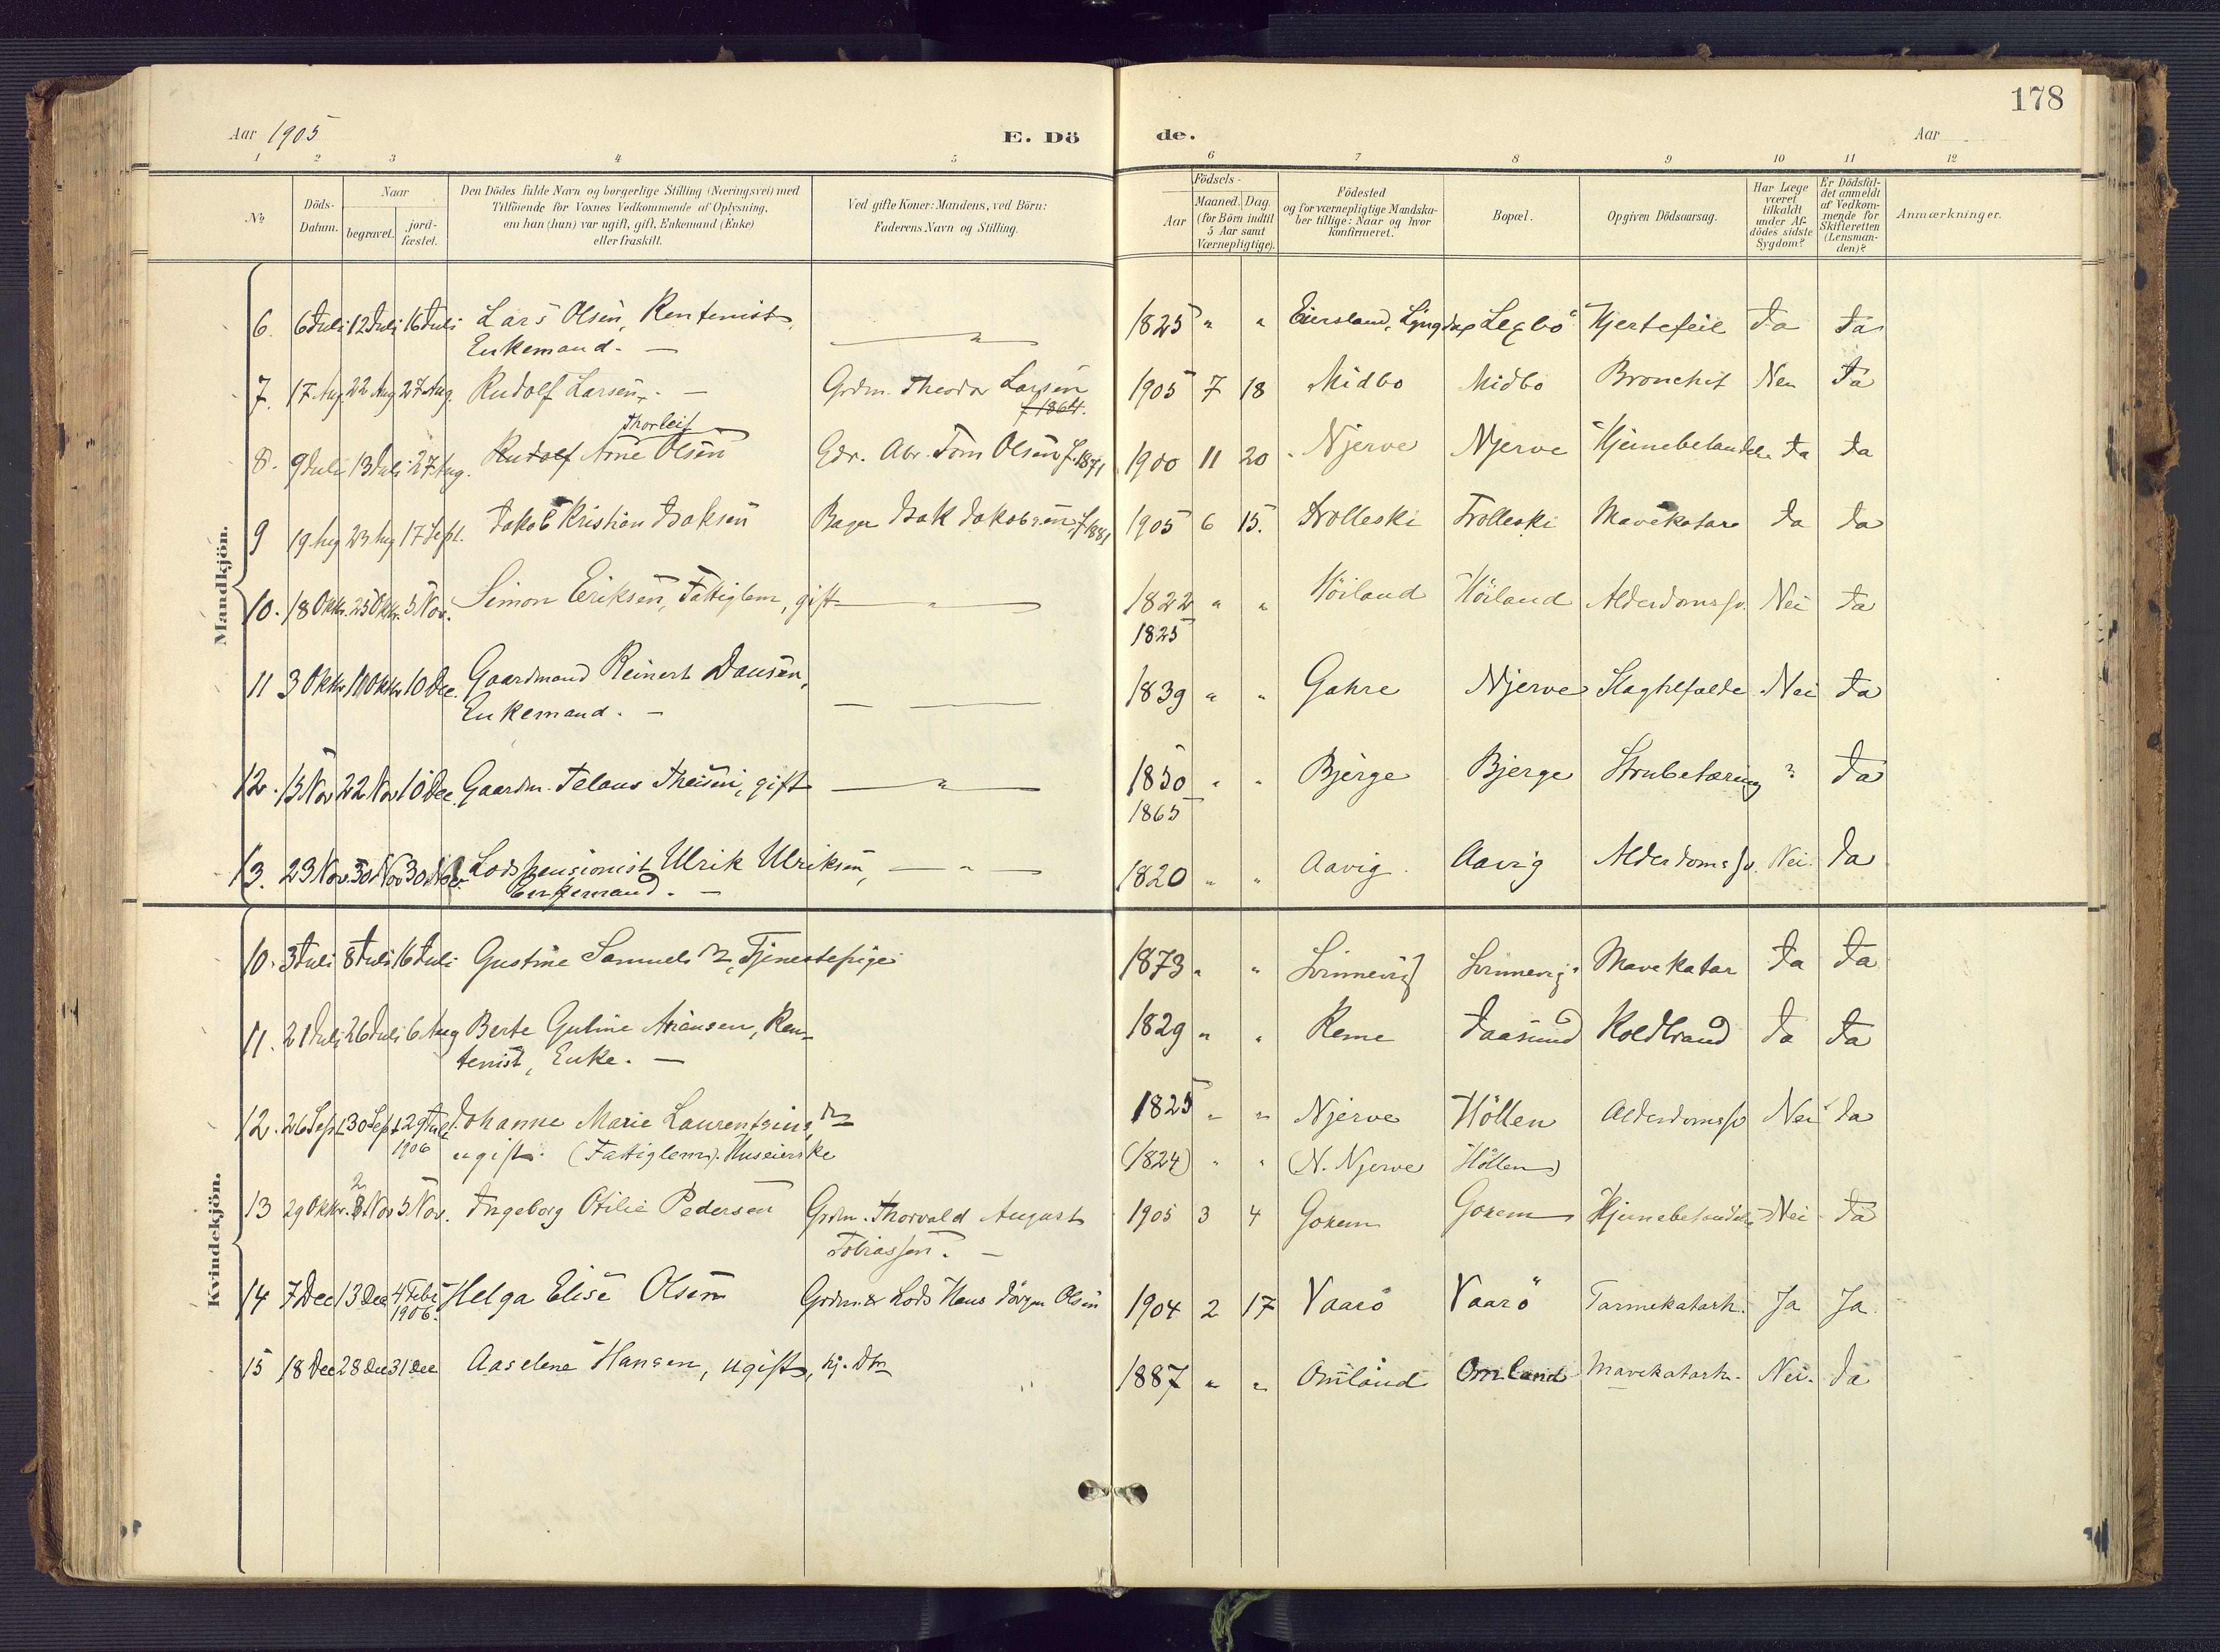 178
Aar 1905
E. Dö
de.
Aar
1 2 3 4 5 6 7 8 9 10 11 12
№
Döds-
Datum.
Naar
begravet.
jord-
fæstet.
Den Dödes fulde Navn og borgerlige Stilling (Næringsvei) med
Tilföiende for Voxnes Vedkommende af Oplysning,
om han (hun) var ugift, gift, Enkemand (Enke)
eller fraskilt.
Ved gifte Koner: Mandens, ved Börn:
Faderens Navn og Stilling.
Födsels-
Aar
Maaned. Dag.
(for Börn indtil
5 Aar samt
Værnepligtige).
Födested
og for værnepligtige Mandska-
ber tillige: Naar og hvor
konfirmeret.
Bopæl.
Opgiven Dödsaarsag.
Har Læge
været
tilkaldt
under Af-
dödes sidste
Sygdom?
Er Dödsfal-
det anmeldt
af Vedkom-
mende for
Skifteretten
(Lensman-
den)?
Anmærkninger.
Mandkjön.
6. 6 Juli 12 Juli 16 Juli Lars Olsen, Rentenist, — " — 1825 " " Eiersland, Lyngdal Hjertefeil Ja Ja
Enkemand. —
7. 17 Aug 22 Aug 27 Aug. Rudolf Larsen. — Grdm. Theodor Larsen 1905 7 18 Midbo Midbo Bronchit Nei Ja
f. 1864.
Thorleif
8. 9 Juli 13 Juli 27 Aug. Rudolf Arne Olsen Gdr. Abr. Tom Olsen f. 1871 1900 11 20 Njerve Njerve Hjernebetændelse Ja Ja
9 19 Aug 23 Aug 17 Sept. Jakob Kristian Isaksen Bager Isak Jakobsen f 1881 1905 6 15. Trolleski Trolleski Mavekatar Ja Ja
10. 18 Oktr. 25 Oktr. 5 Nov. Simon Eriksen, Fattiglem, gift — " — 1822 " " Höiland Höiland Alderdomssv. Nei Ja
1825
11 3 Oktr 10 Oktr 10 Dec. Gaardmand Reinert Dansen, — — 1839 " " Gahre Njerve Slagtilfælde Nei Ja
Enkemand. —
12. 15 Nov 22 Nov 10 Dec. Gaardm. Telaus Theisen, gift — " — 1850 " " Bjerge Bjerge Strubetæring ? Ja
1865
13. 23 Nov 30 Nov 30 Nov Lodspensionist Ulrik Ulriksen, — " — 1820 " " Aavig Aavig Alderdomssv. Nei. Ja
Enkemand. —
Kvindekjön.
10. 3 Juli 8 Juli 16 Juli Gustine Samuelsdr, Tjenestepige 1873 " " Svinnevig Svinnevig Mavekatar Ja Ja
11. 21 Juli 26 Juli 6 Aug Berte Guline Ariansen, Ren- 1829 " " Reme Jaasund Koldbrand Ja Ja
tenist, Enke. —
12. 26 Sept 30 Sept 29 Juli Johanne Marie Laurentziusdr 1825 " " Njerve Höllen Alderdomssv Nei Ja
1906 ugift. (Fattiglem). Huseierske (1824) " " (N. Njerve Höllen)
2
13 29 Oktr. 3 Nov 5 Nov. Ingeborg Otilie Pedersen Grdm. Thorvald August 1905 3 4 Goxem Goxem Hjernebetændelse Nei Ja
Tobiassen. —
14 7 Dec 13 Dec 4 Febr Helga Elise Olsen Grdm & Lods Hans Jörgen Olsen 1904 2 17 Vaarö Vaarö Tarmekatarh. Ja Ja
1906.
15 18 Dec 28 Dec 31 Dec Aaselene Hansen, ugift, hj. Dtr 1887 " " Omland Omland Mavekatarh. Nei. Ja